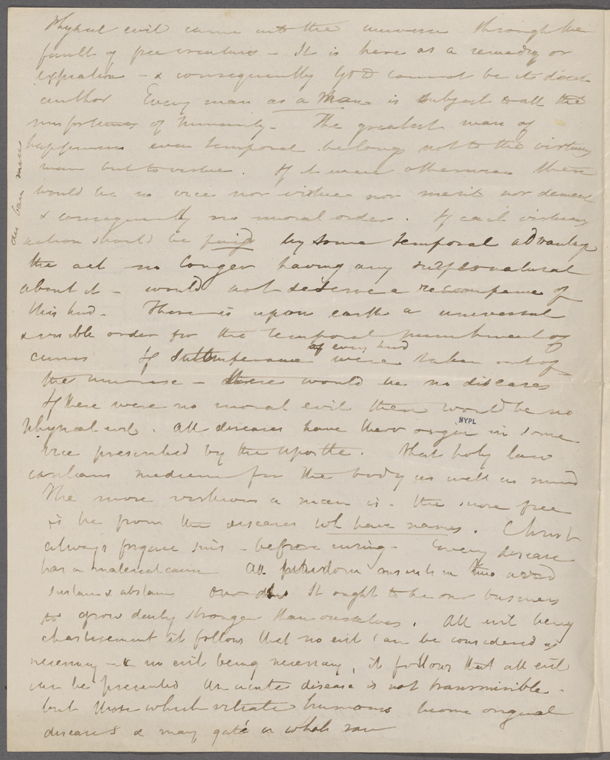 Physical evil came into the universe through the
fault of free creatures - It is here as a remedy or
expiation - & consequently God cannot be its direct
author Every man as a man is subject to all the
misfortunes of humanity. The greatest mass of
happiness even temporal belongs not to the virtuous
man but to virtue. If it were otherwise there
would be no vice nor virtue nor merit nor demerit
& consequently no moral order. If each virtuous
action should be paid by some temporal advantage
the act no longer having any supernatural
about it - would not deserve a recompense of
this kind. There is upon earth a universal
& visible order for the temporal punishment of
crimes If Intemperance of every kind were taken out of
the universe - there would be no diseases
If there were no moral evil there would be no
physical evil. All diseases have their origin in some
vice by the Apostle. That holy law
contains medicine for the body as well as mind
The more virtuous a man is - the more free
is he from the diseases wh have names. Christ
always forgave sins - before curing - Every disease
has a material cause All in two words
sustain & abstain It ought to be our business
to grow daily stronger than ourselves. All evil being
chastisement it follows that no evil can be considered as
necessary - & no evil being necessary, it follows that all evil
can be prevented An acute disease is not transmissible -
but those which vitiate humours become original
diseases & may a whole race
NYPL